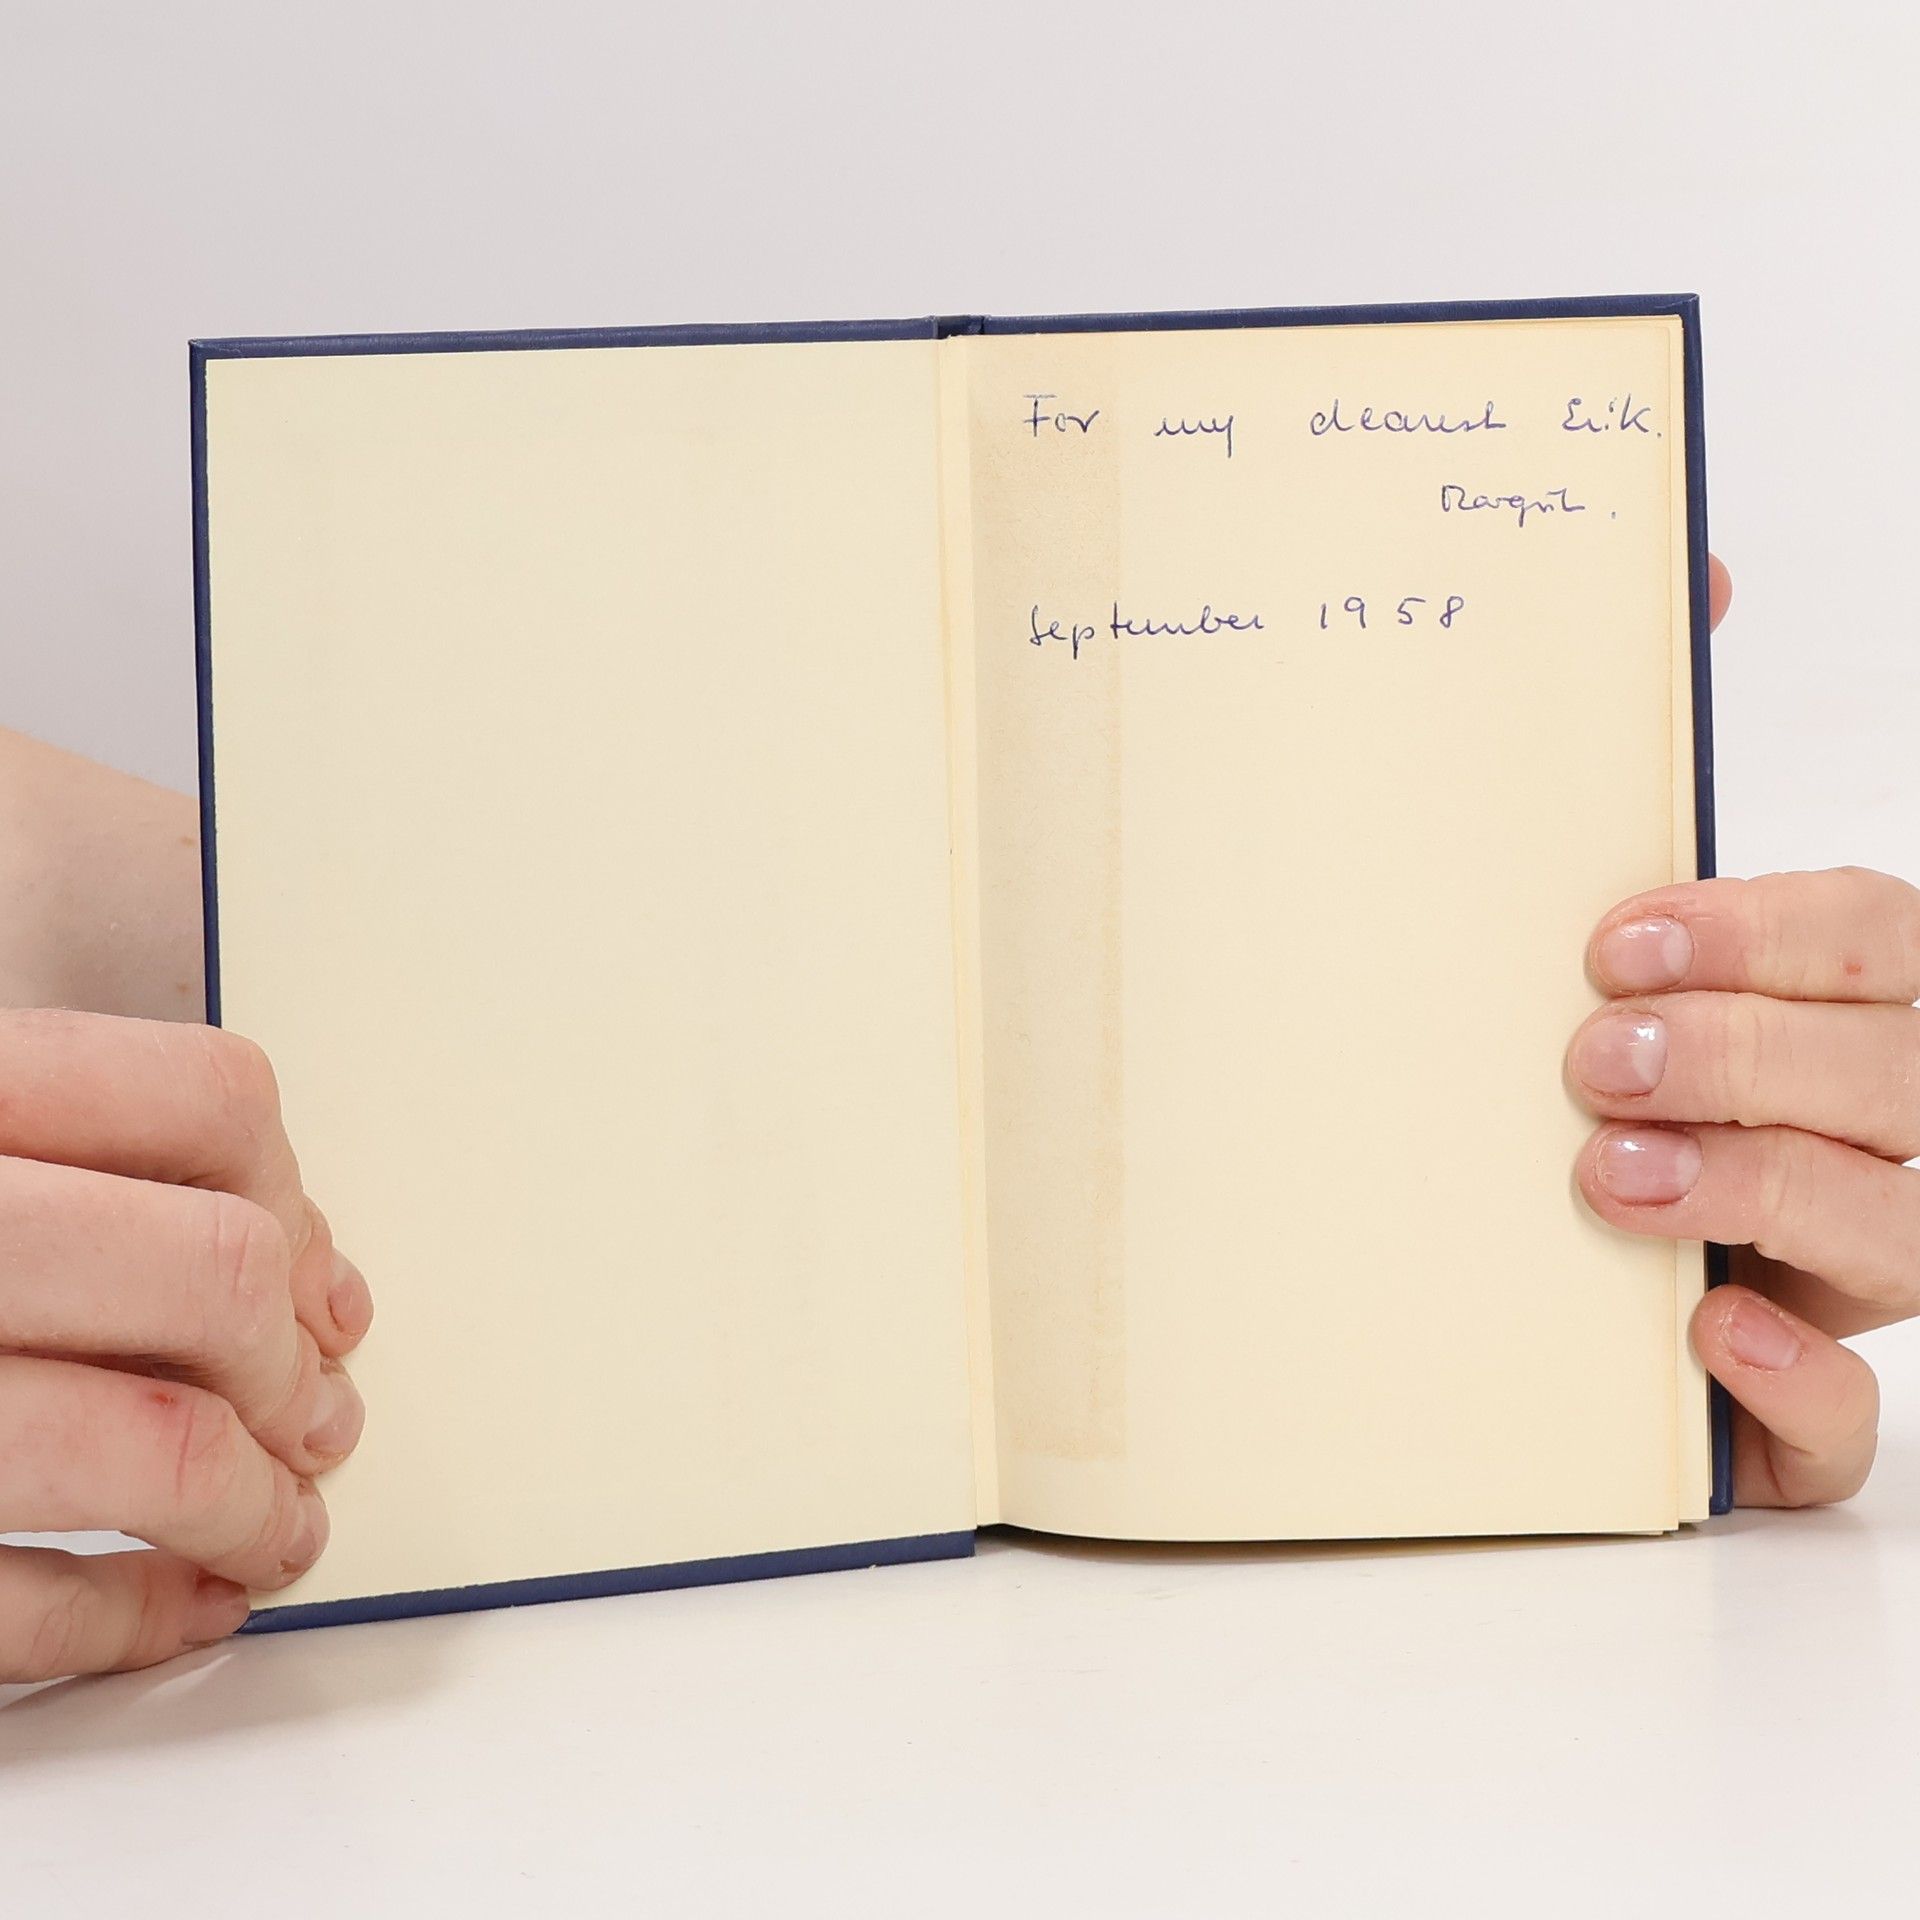 For my dearest Erik.
Margit.
September 1958